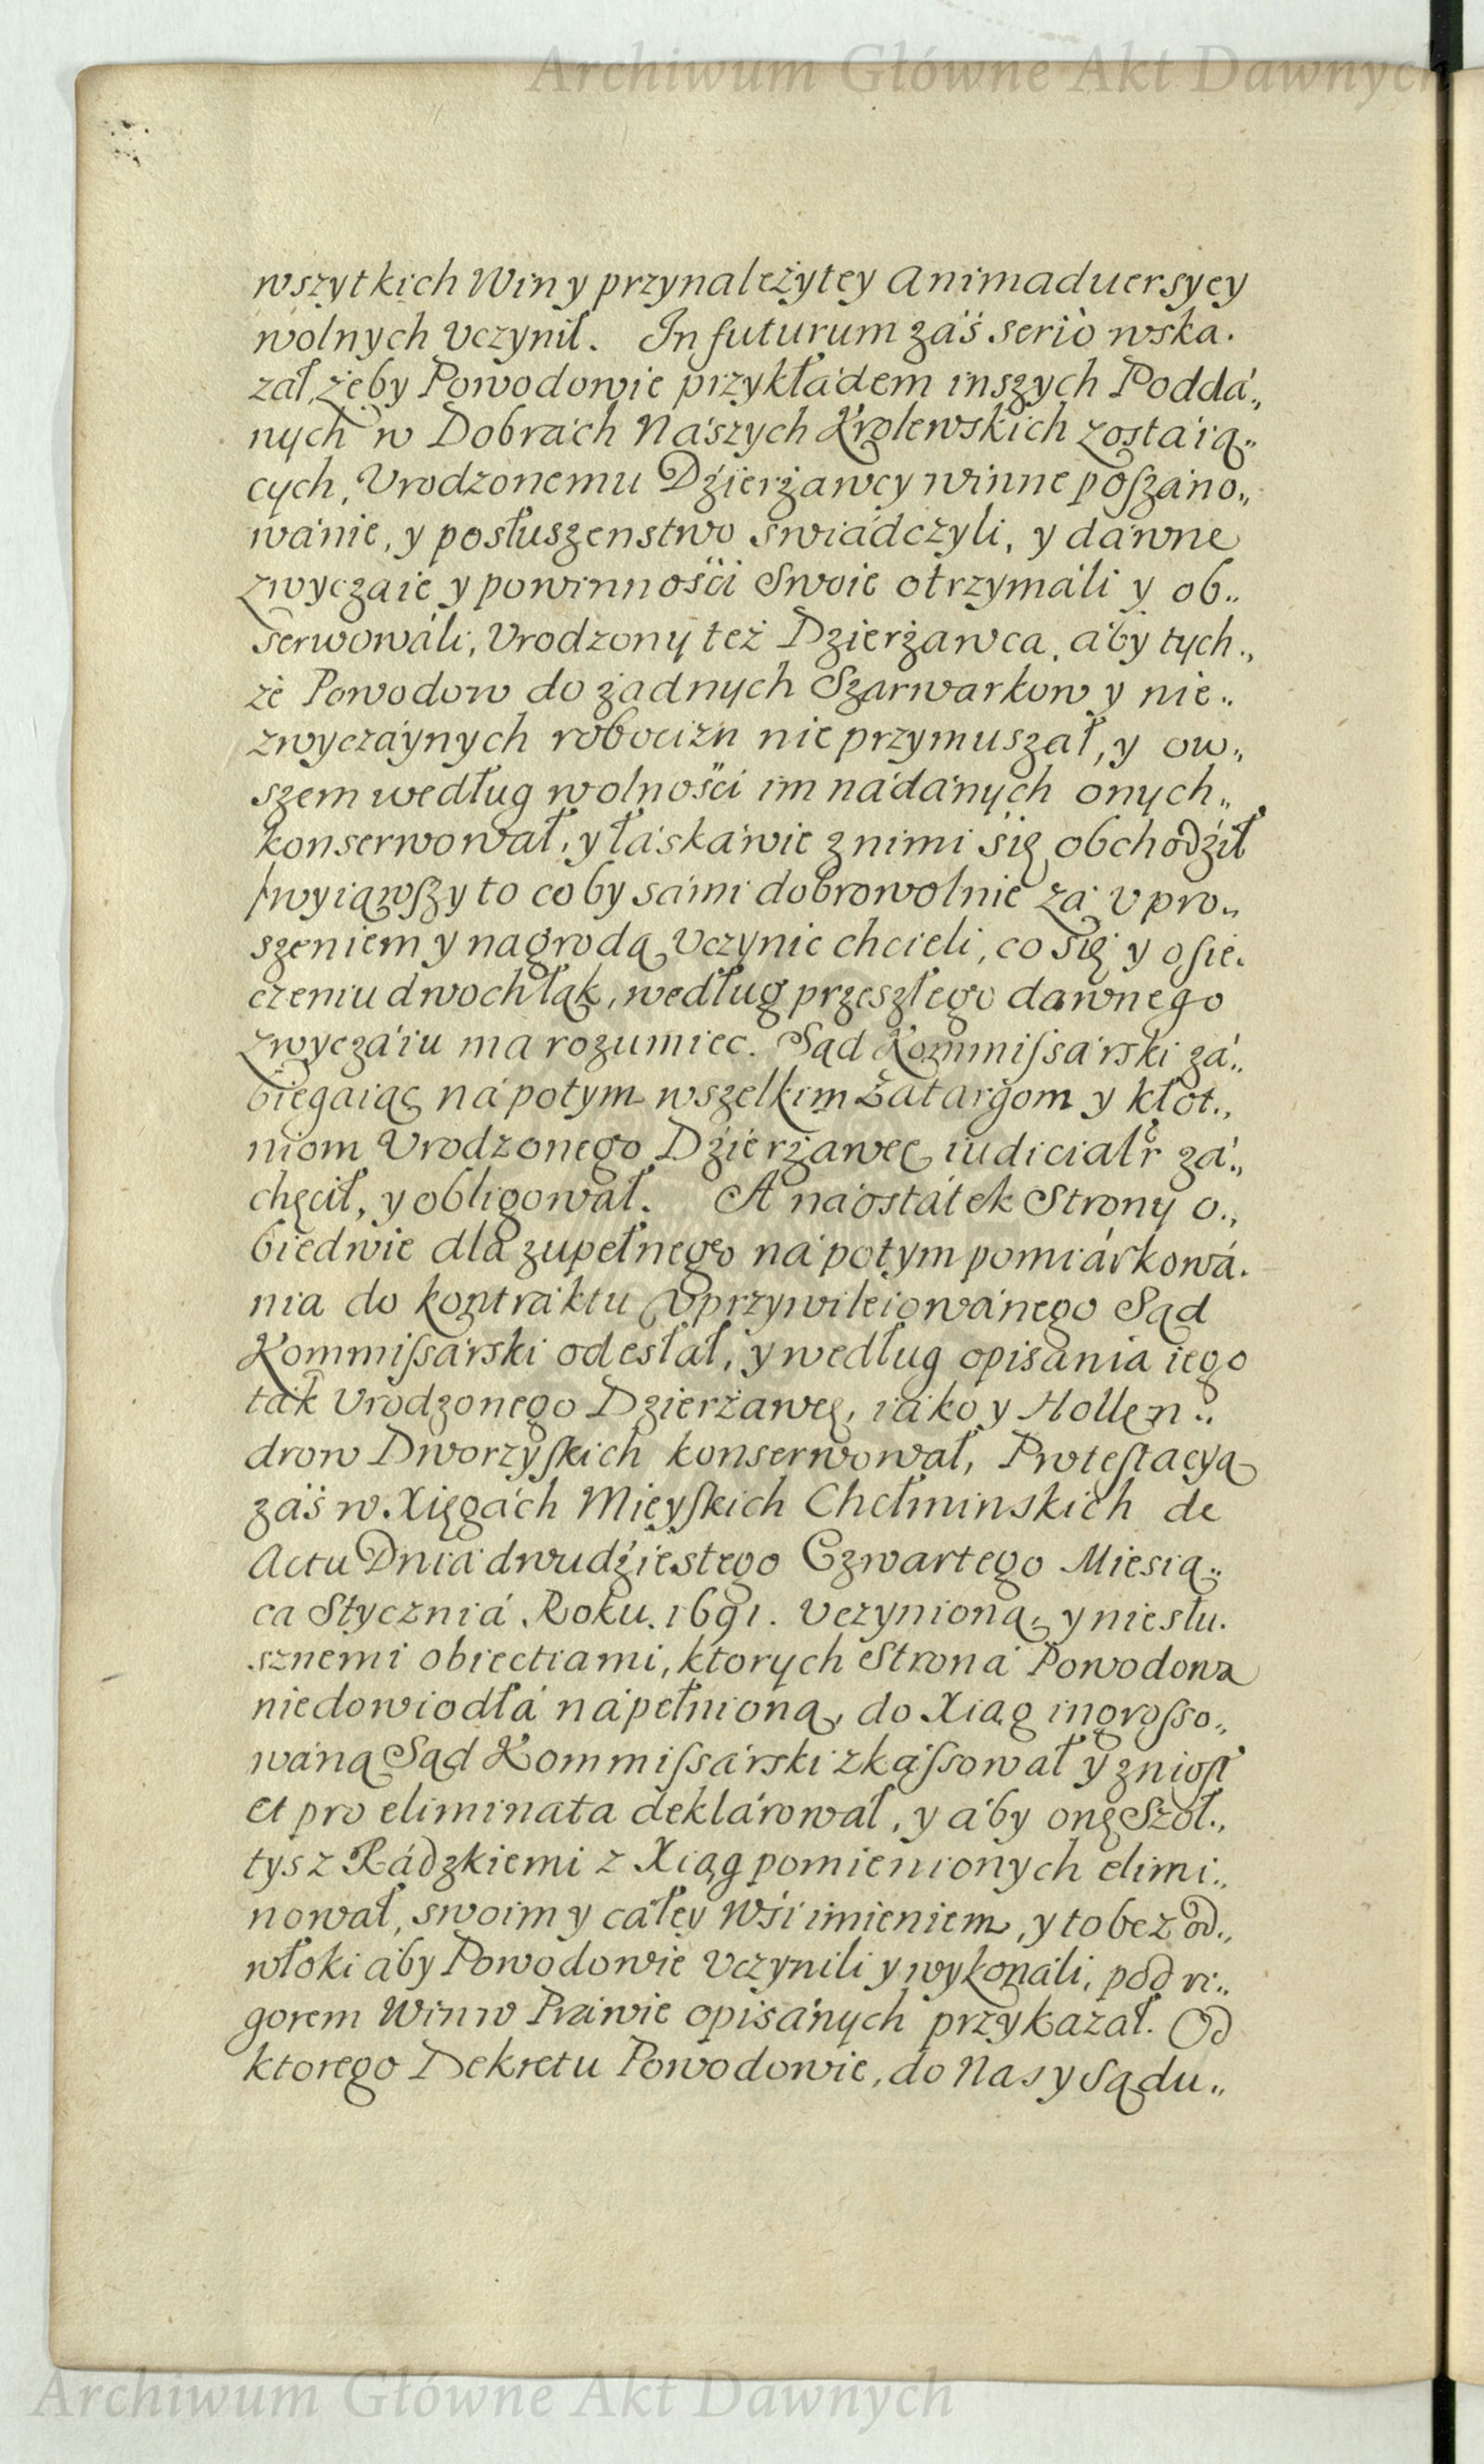 Archiwum Główne Akt Dawnych
wszytkich Win y przynależytey Animaduersyey
wolnych vczynił. In futurum záś serio wska.
zał, żeby Powodowie przykłádem inszych Poddá„
nych w Dobrách Nászych Krolewskich zostáią„
cych, Vrodzonemu Dźierżawcy winne poszáno„
wánie, y posłuszenstwo świádczyli, y dáwne
zwyczaie y powinnośći Swoie otrzymáli y ob„
serwowáli, Vrodzony też Dzierżawca, áby tych„
że Powodow do żadnych Szarwarkow y nie„
zwyczáynych robocizn nie przymuszał, y ow„
szem według wolnośći im nádánych onych„
konserwował, y łáskáwie z nimi się obchodźił
/wyiąwszy to coby sámi dobrowolnie zá vpro„
szeniem y nagrodą vczynic chcieli, co się y o sie„
czeniu dwoch łąk, według przeszłego dawnego
zwyczáiu ma rozumiec. Sąd Kommissárski zá„
biegaiąc nápotym wszelkim Zatargom y kłot„
niom Vrodzonego Dźierżawcę iudicialr zá„
chęcił, y obligował. A náostátek Strony o„
biedwie dla zupełnego nápotym pomiárkowá„
nia do kontráktu vprzywileiowánego Sąd
Kommissárski odesłał, y według opisánia iego
ták Vrodzonego Dzierżawcę, iáko y Hollen„
drow Dworzyskich konserwował, Protestacyą
záś w Xięgách Mieyskich Chełminskich de
Actu Dniá dwudźiestego Czwartego Miesią„
ca Styczniá Roku. 1691. vczynioną, y niesłu.
sznemi obiectiami, ktorych Stroná Powodowa
niedowiodłá nápełnioną, do Xiąg ingrosso„
wáną Sąd Kommissárski zkássował y zniosł
et pro eliminata deklárował, y áby onę Szoł„
tys z Rádzkiemi z Xiąg pomienionych elimi„
nował, swoim y cáłey Wśi imieniem, y to bez od„
włoki áby Powodowie vczynili y wykonáli, pod ri„
gorem Win w Práwie opisánych przykazał. Od
ktorego Dekretu Powodowie, do Nas y Sądu„
Archiwum Główne Akt Dawnych